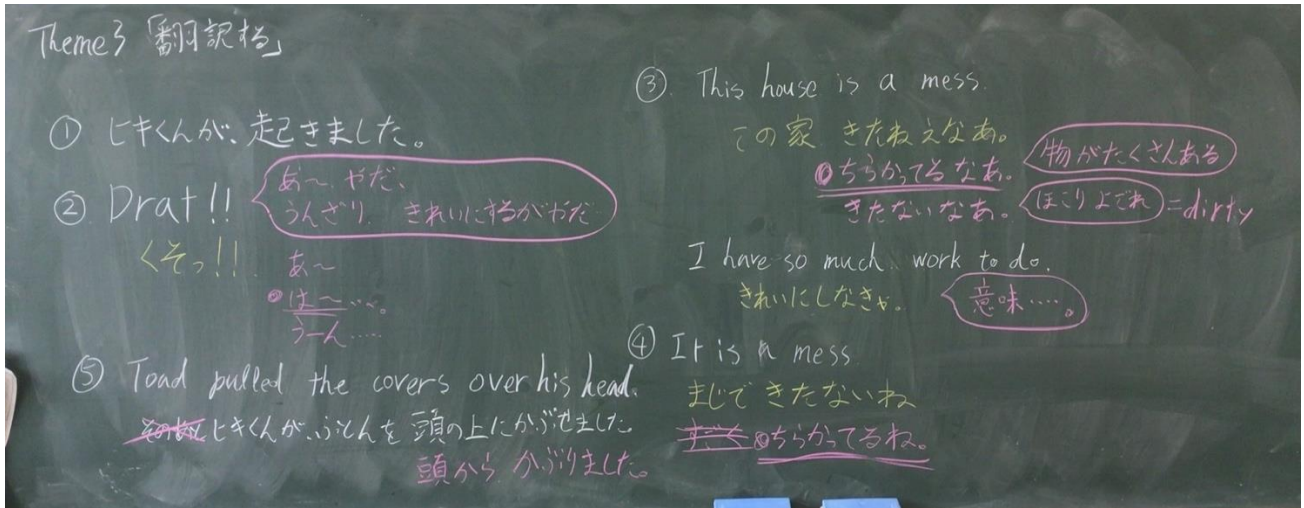 Theme 3 「翻訳する」
① ヒキくんが、起きました。
② Drat!!
くそっ!!
あ〜、やだ、
うんざり きれいにするがやだ
あ〜
は〜…。
うーん……
⑤ Toad pulled the covers over his head.
ヒキくんが、ふとんを 頭の上にかぶせました。
頭から かぶりました。
③ This house is a mess.
この家 きたねえなあ。
ちらかってるなあ。
物がたくさんある
きたないなあ。
ほこり よごれ =dirty
I have so much work to do.
きれいにしなきゃ。
意味……。
④ It is a mess
まじで きたないね
すごく ちらかってるね。